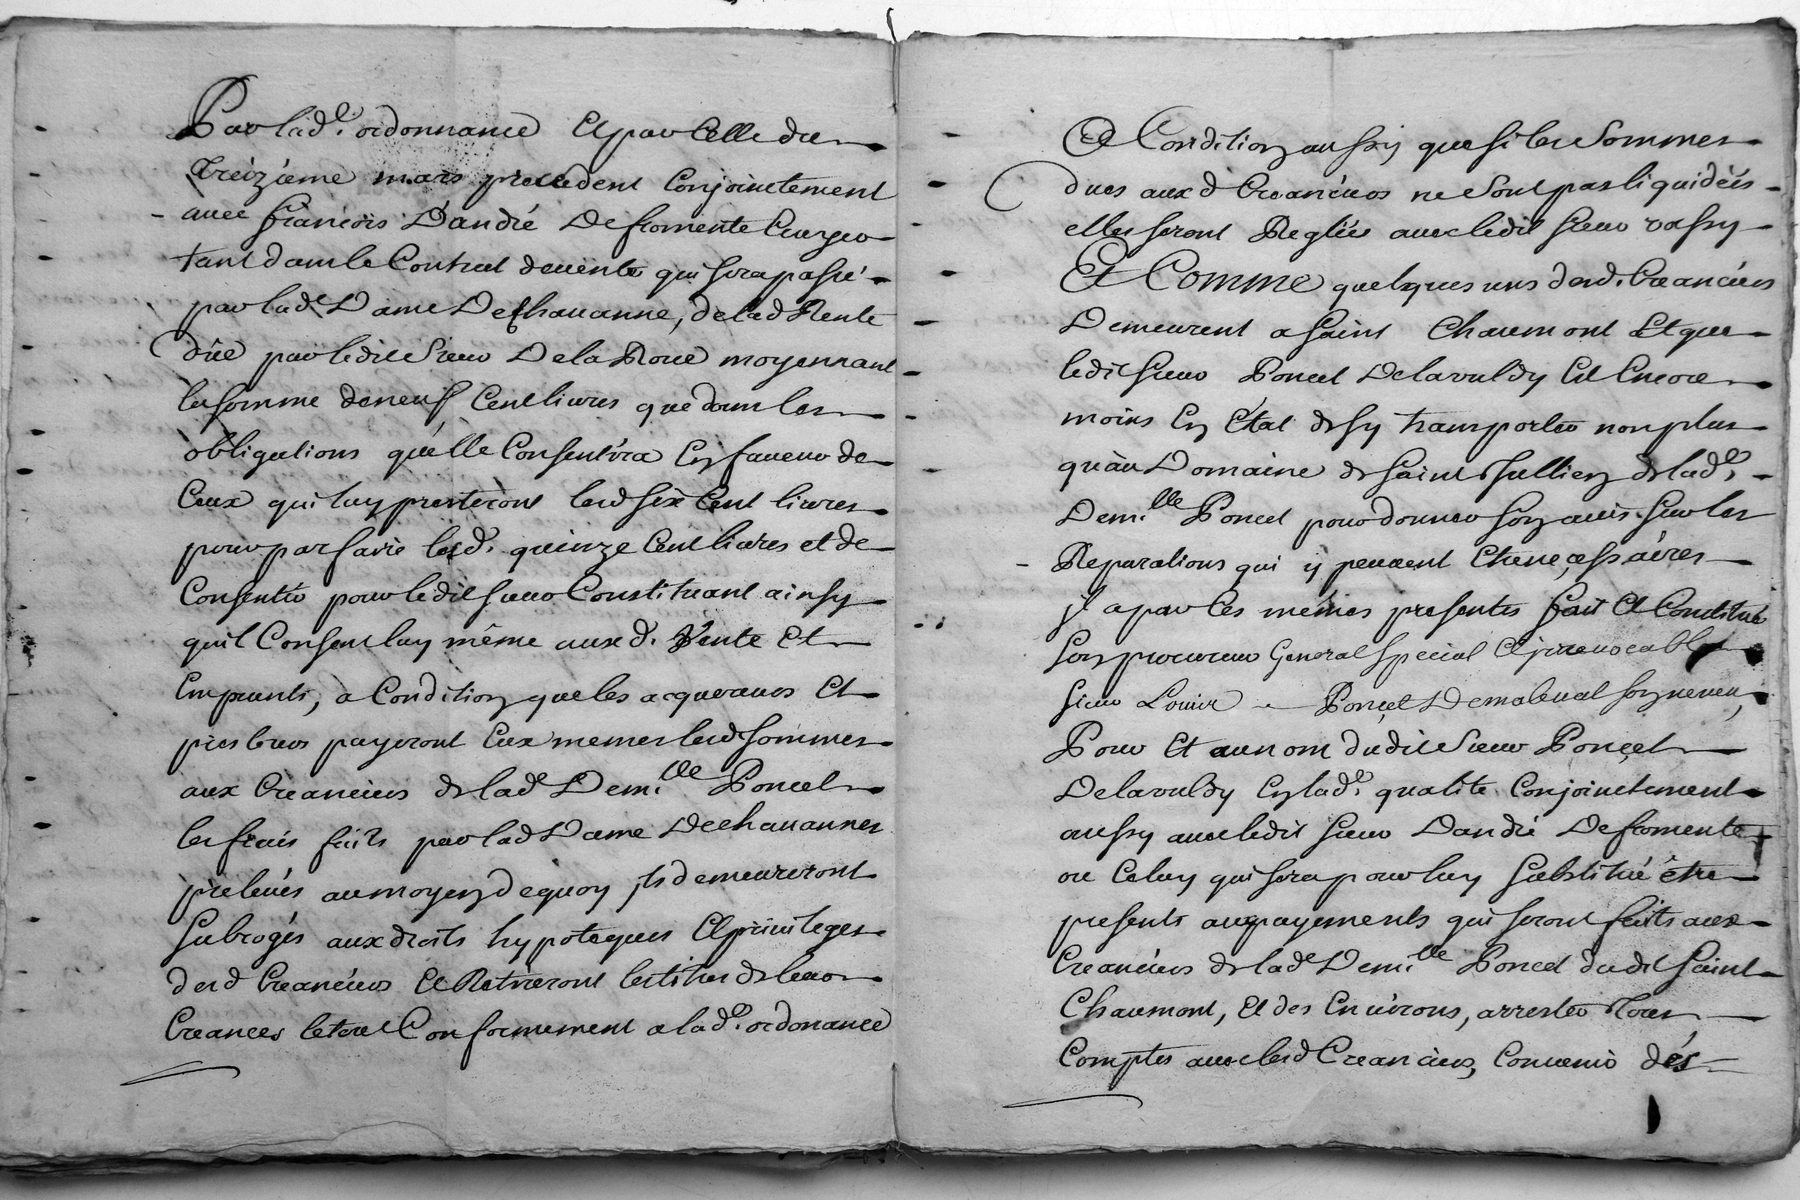 Par lad.e ordonnance Et par Celle du
treiziéme mars precedent Conjointement
avec françois D'andré De fromente bourgeo
tant dans le Contract de vente qui sera passé
par lad.e Dame De chavanne, de lad Rente
dûe par ledit Sieur De la Roue moyennant
la somme de neuf Cent livres que dans les
obligations qu'elle Consentira En faveur de
Ceux qui luy presteront lesd six Cent livres
pour parfaire lesd. quinze Cent livres et de
Consentir pour ledit Sieur Constituant ainsy
quil Consent luy même auxd. Vente Et
Emprunts, a Condition que les acquereurs Et
presteurs payeront Eux memes lesd sommes
aux Creanciers de lad.e Dem.lle Poncet
les frais faits par lad Dame De chavannes
prelevés au moyen de quoy ils demeureront
Subrogés aux droits hypoteques Et privileges
desd Creanciers Et Retireront les titres de leur
Creances le tout Conformement a lad.e ordonance
Et Condition aussy que si les Sommes
dues auxd Creanciers ne Sont pas liquidées
elles seront Reglées avec ledit Sieur
Et Comme quelques uns desd. Creanciers
Demeurent a Saint Chaumont Et que
ledit Sieur Poncet Delavuldy Est Encore
moins En Etat de sy transporter non plus
qu'au Domaine de Saint Jullien de lad.e
Dem.lle Poncet pour donner son avis sur les
Reparations qui y peuvent Etre neçessáires
jl a par Ces mêmes presentes fait Et Constitué
son procureur General Special Et jrrevocable
Sieur Louis Ponçet Demaleval son neveu,
Pour Et au nom dudit Sieur Ponçet
Delavuldy En lad.e qualité Conjointement
aussy avec ledit Sieur Dandré De fromente
ou Celuy qui sera pour luy Substitué être
presents aux payements qui seront faits aux
Creanciers de lad.e Dem.lle Poncet dudit Saint
Chaumont, Et des Environs, arrester tous
Comptes avec lesd Creanciers, Convenir dés